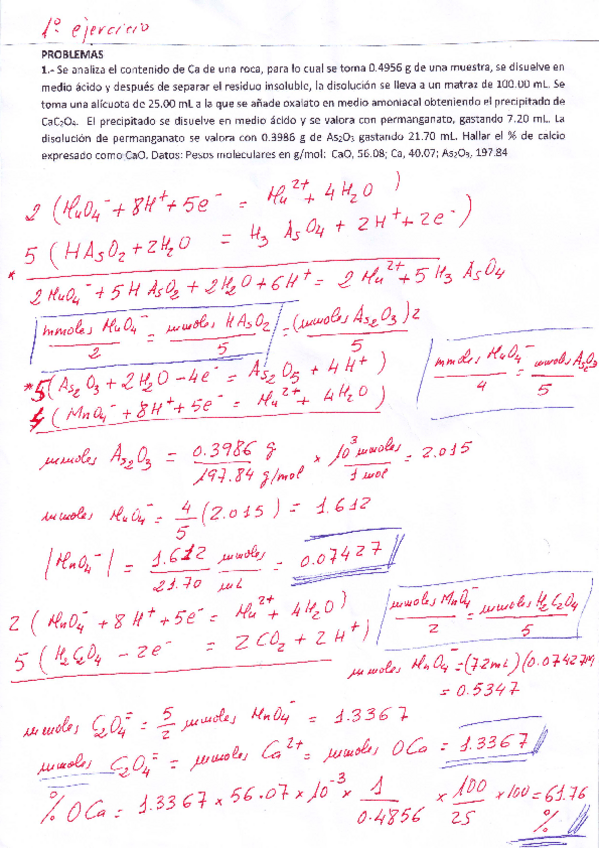 1º ejercicio
PROBLEMAS
1.- Se analiza el contenido de Ca de una roca, para lo cual se toma 0.4956 g de una muestra, se disuelve en
medio ácido y después de separar el residuo insoluble, la disolución se lleva a un matraz de 100.00 mL. Se
toma una alícuota de 25.00 mL a la que se añade oxalato en medio amoniacal obteniendo el precipitado de
CaC₂O₄. El precipitado se disuelve en medio ácido y se valora con permanganato, gastando 7.20 mL. La
disolución de permanganato se valora con 0.3986 g de As₂O₃ gastando 21.70 mL. Hallar el % de calcio
expresado como CaO. Datos: Pesos moleculares en g/mol: CaO, 56.08; Ca, 40.07; As₂O₃, 197.84
2 (MnO₄⁻ + 8H⁺ + 5e⁻ = Mn²⁺ + 4H₂O)
5 (HAsO₂ + 2H₂O = H₃AsO₄ + 2H⁺ + 2e⁻)
* 2MnO₄⁻ + 5HAsO₂ + 2H₂O + 6H⁺ = 2Mn²⁺ + 5H₃AsO₄
mmoles MnO₄⁻/2 = mmoles HAsO₂/5 = (mmoles As₂O₃)2/5
*5(As₂O₃ + 2H₂O - 4e⁻ = As₂O₅ + 4H⁺)
mmoles MnO₄⁻/4 = mmoles As₂O₃/5
4 (MnO₄⁻ + 8H⁺ + 5e⁻ = Mn²⁺ + 4H₂O)
mmoles As₂O₃ = 0.3986 g/197.84 g/mol × 10³ mmoles/1 mol = 2.015
mmoles MnO₄⁻ = 4/5 (2.015) = 1.612
|MnO₄⁻| = 1.612 mmoles/21.70 mL = 0.07427
2 (MnO₄⁻ + 8H⁺ + 5e⁻ = Mn²⁺ + 4H₂O)
5 (H₂C₂O₄ - 2e⁻ = 2CO₂ + 2H⁺)
mmoles MnO₄⁻/2 = mmoles H₂C₂O₄/5
mmoles MnO₄⁻ = (7.2mL)(0.07427M)
= 0.5347
mmoles C₂O₄⁼ = 5/2 mmoles MnO₄⁻ = 1.3367
mmoles C₂O₄⁼ = mmoles Ca²⁺ = mmoles OCa = 1.3367
% OCa = 1.3367 × 56.07 × 10⁻³ × 1/0.4856 × 100/25 × 100 = 61.76 %